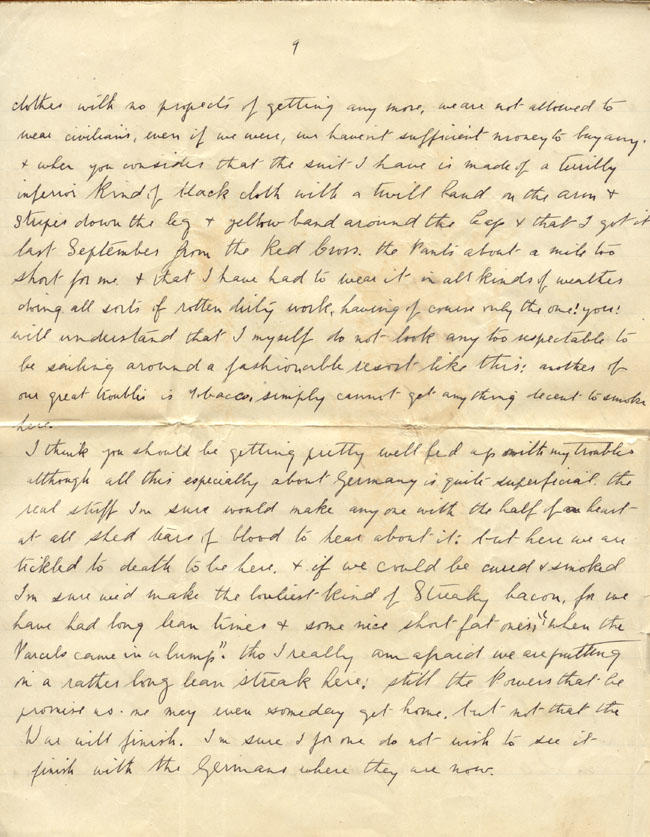 9
clothes with no propects of getting any more, we are not allowed to
wear civilians, even if we were, we havent sufficient money to buy any.
+ when you consider that the suit I have is made of a terribly
inferior kind of black cloth with a twill band on the arm +
stripes down the leg + yellow band around the cap + that I got it
last September from the Red Cross. the Pants about a mile too
short for me. + that I have had to wear it in all kinds of weather
doing all sorts of rotten dirty work, having of course only the one! you!
will understand that I myself do not look any too respectable to
be sailing around a fashionable resort like this: another of
our great troubles is Tobacco, simply cannot get anything decent to smoke
here.
I think you should be getting pretty well fed up with my troubles
although all this especially about Germany is quite superficial. the
real stuff I'm sure would make anyone with the half of a heart
at all shed tears of blood to hear about it: but here we are
tickled to death to be here. + if we could be cured + smoked
I'm sure we'd make the loveliest kind of Streaky bacon, for we
have had long lean times + some nice short fat ones "when the
Parcels came in a lump". tho I really am afraid we are putting
in a rather long lean streak here: still the Powers that be
promise us we may even someday get home, but not that the
War will finish. I'm sure I for one do not wish to see it
finish with the Germans where they are now.